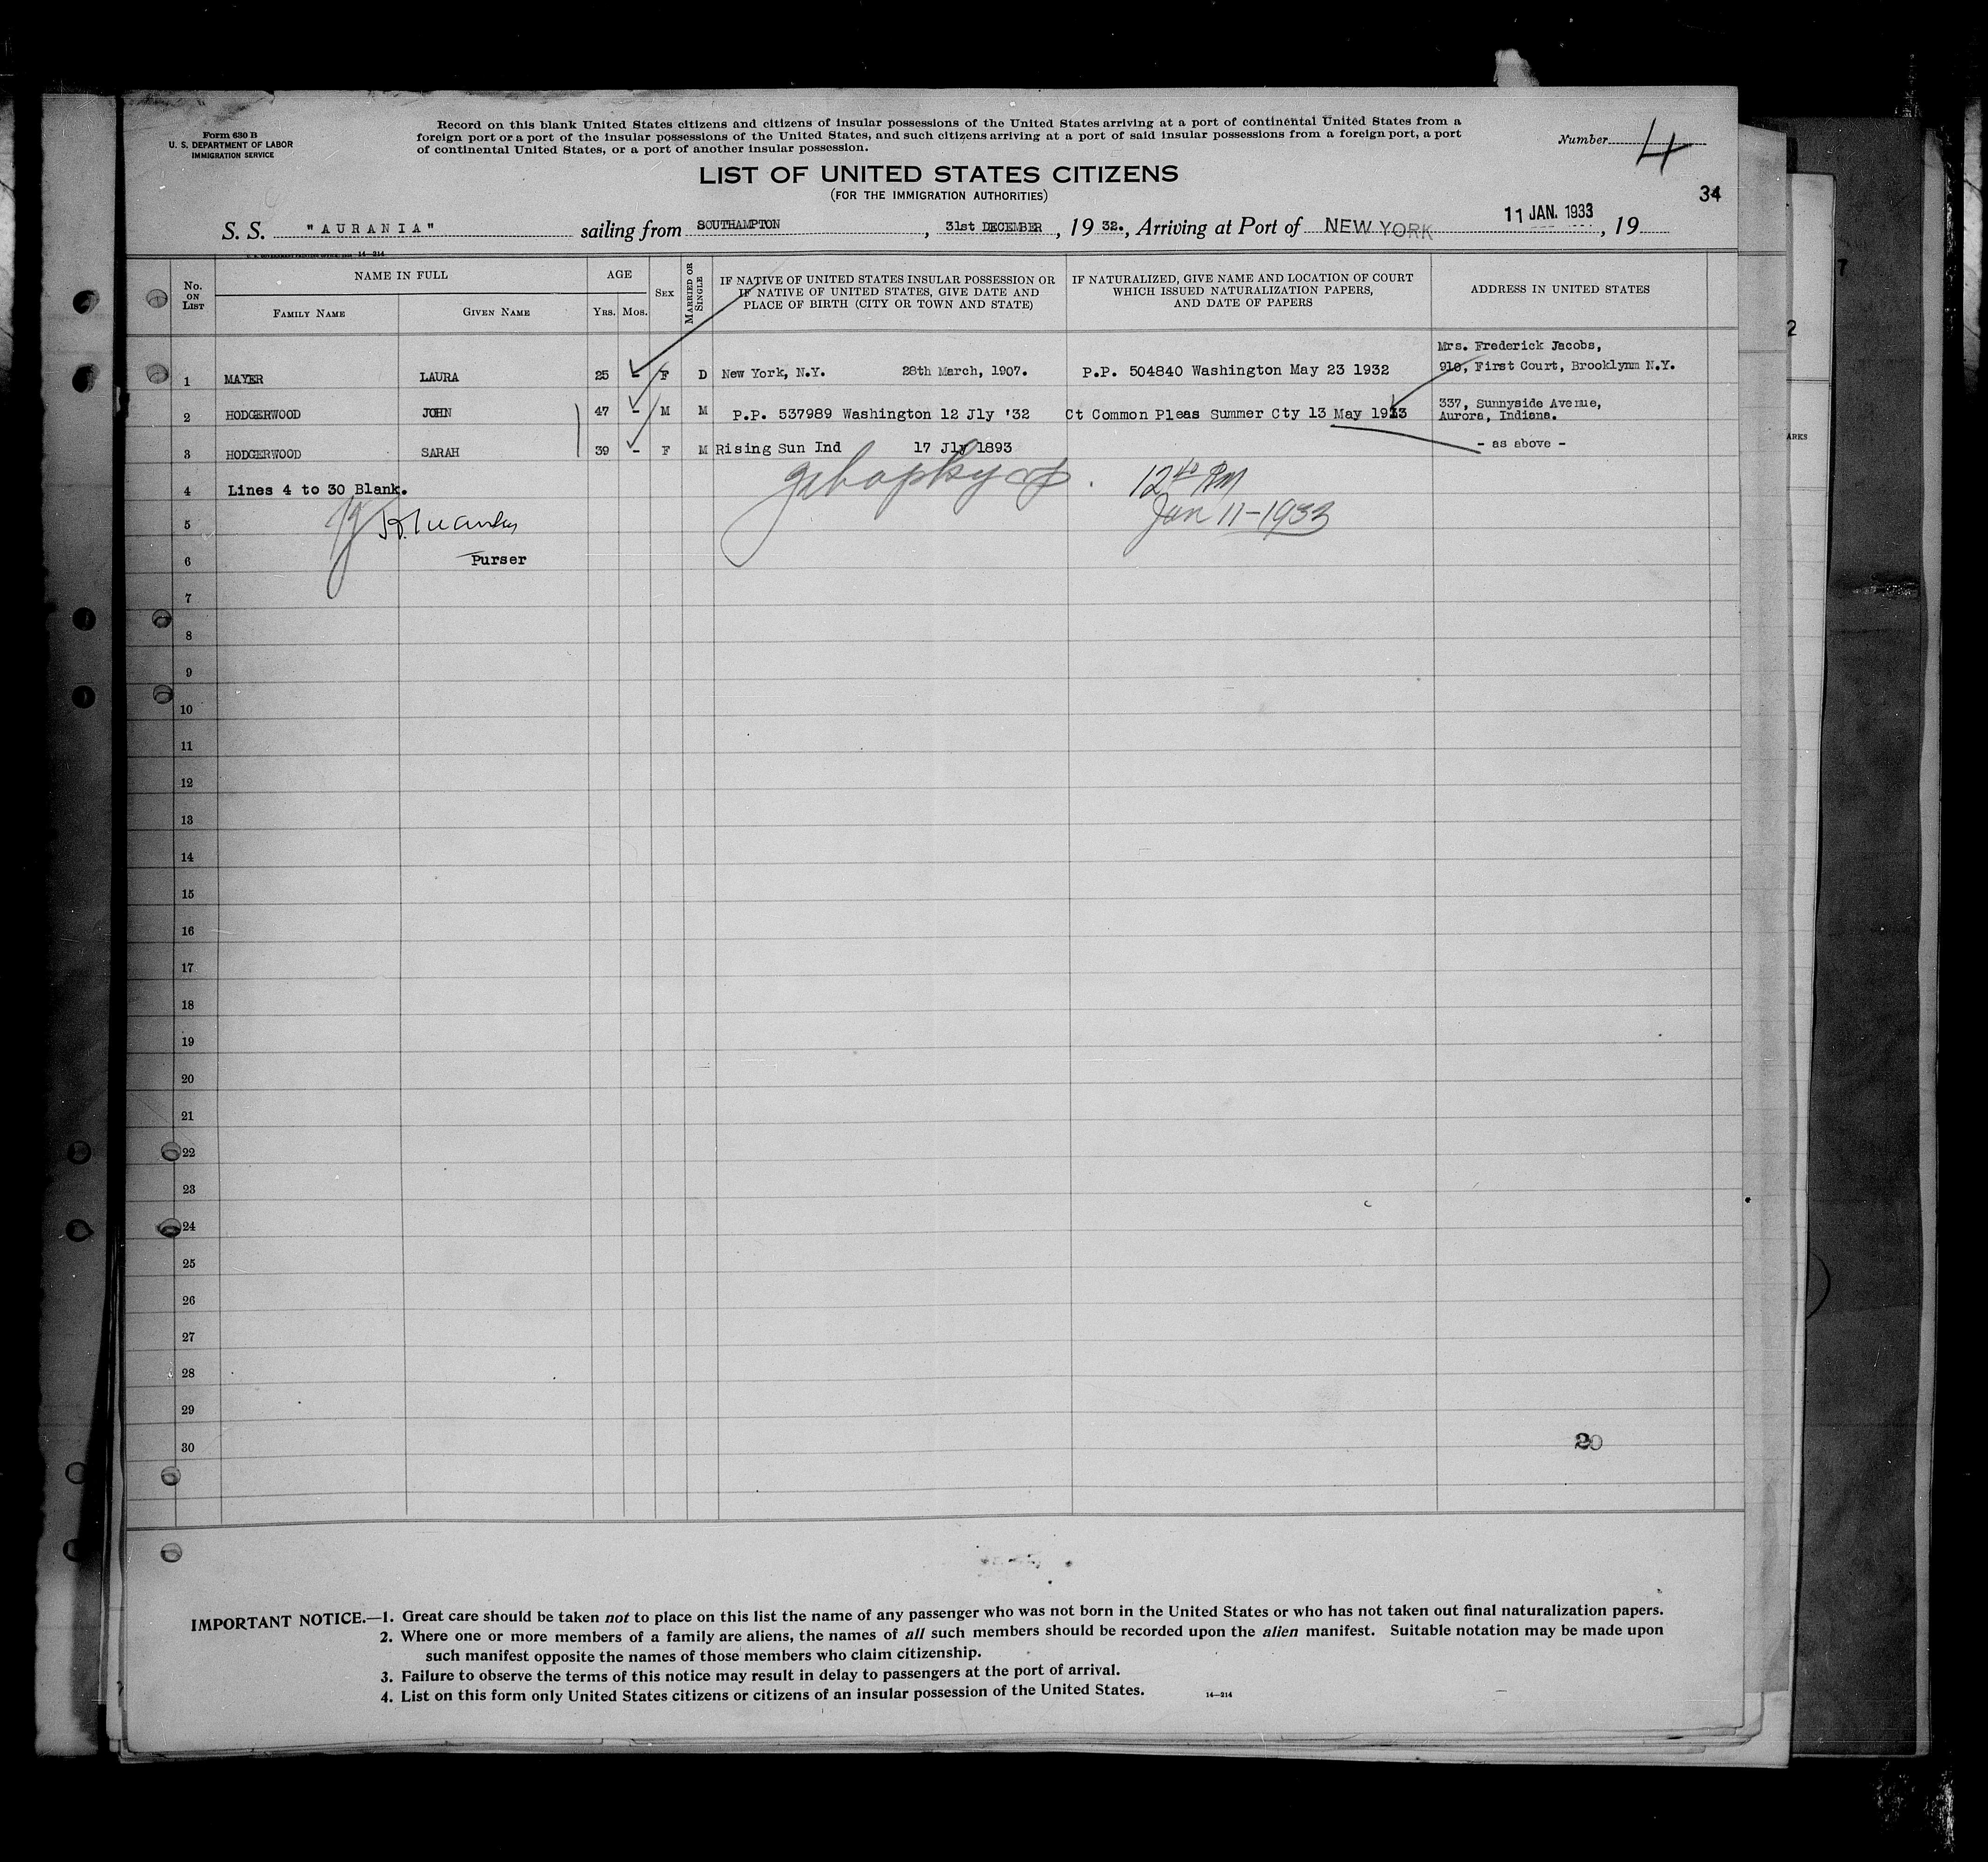 Form 630 B
U. S. DEPARTMENT OF LABOR
IMMIGRATION SERVICE
Record on this blank United States citizens and citizens of insular possessions of the United States arriving at a port of continental United States from a
foreign port or a port of the insular possessions of the United States, and such citizens arriving at a port of said insular possessions from a foreign port, a port
of continental United States, or a port of another insular possession.
Number 4
LIST OF UNITED STATES CITIZENS
(FOR THE IMMIGRATION AUTHORITIES)
34
S. S. "AURANIA" sailing from SOUTHAMPTON, 31st DECEMBER, 19 32., Arriving at Port of NEW YORK 11 JAN. 1933, 19
14—214
No. ON LIST
NAME IN FULL
FAMILY NAME
GIVEN NAME
AGE
YRS. MOS.
SEX
MARRIED OR SINGLE
IF NATIVE OF UNITED STATES INSULAR POSSESSION OR
IF NATIVE OF UNITED STATES, GIVE DATE AND
PLACE OF BIRTH (CITY OR TOWN AND STATE)
IF NATURALIZED, GIVE NAME AND LOCATION OF COURT
WHICH ISSUED NATURALIZATION PAPERS,
AND DATE OF PAPERS
ADDRESS IN UNITED STATES
Mrs. Frederick Jacobs,
1 MAYER LAURA 25 - F D New York, N.Y. 28th March, 1907. P.P. 504840 Washington May 23 1932 910, First Court, Brooklynn N.Y.
2 HODGERWOOD JOHN 47 - M M P.P. 537989 Washington 12 Jly '32 Ct Common Pleas Summer Cty 13 May 1913 337, Sunnyside Avenue,
Aurora, Indiana.
3 HODGERWOOD SARAH 39 - F M Rising Sun Ind 17 Jly 1893 - as above -
4 Lines 4 to 30 Blank.
12 40 PM
5
Jan 11-1933
6 Purser
7
8
9
10
11
12
13
14
15
16
17
18
19
20
21
22
23
24
25
26
27
28
29
30
20
IMPORTANT NOTICE.—1. Great care should be taken not to place on this list the name of any passenger who was not born in the United States or who has not taken out final naturalization papers.
2. Where one or more members of a family are aliens, the names of all such members should be recorded upon the alien manifest. Suitable notation may be made upon
such manifest opposite the names of those members who claim citizenship.
3. Failure to observe the terms of this notice may result in delay to passengers at the port of arrival.
4. List on this form only United States citizens or citizens of an insular possession of the United States.
14—214
2
7
ARKS